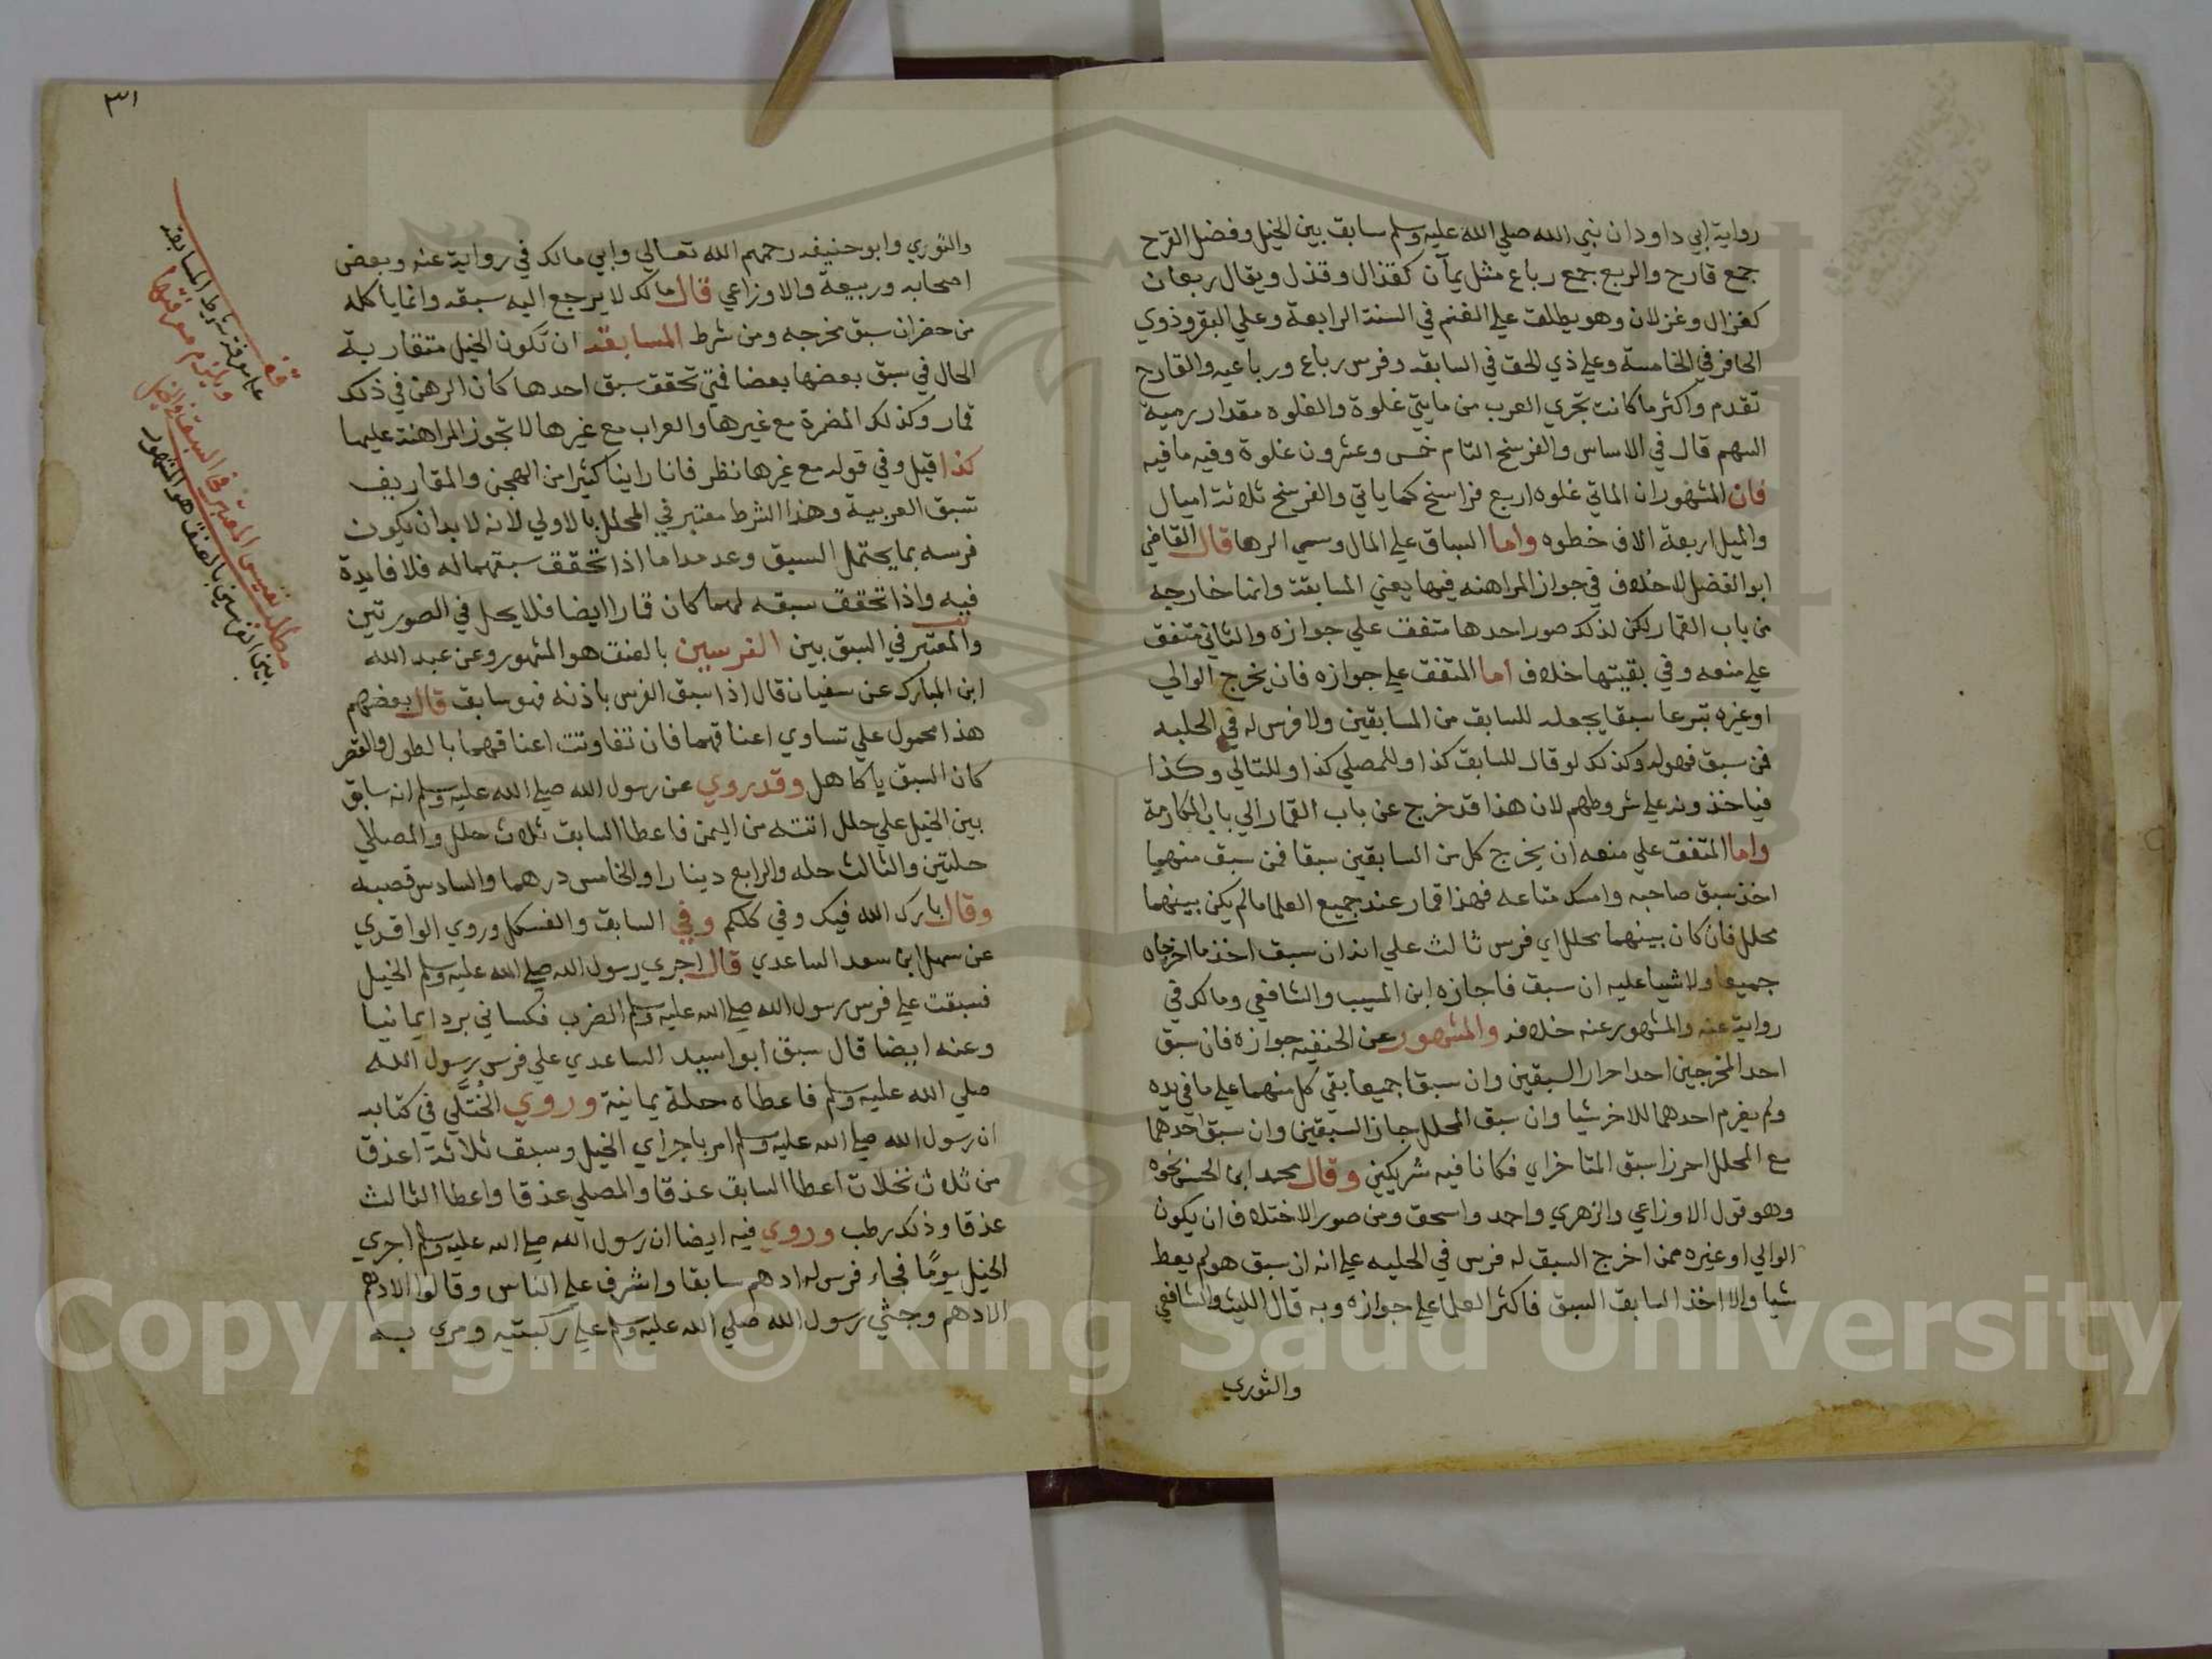 رواية ابي داود ان نبي الله صلي الله عليه وسلم سابق بين الخيل وفضل القرح
جمع قارح والربع جمع رباع مثل يمان كقذال وقذل ويقال ربعان
كغزال وغزلان وهو يطلق علي الغنم في السنة الرابعة وعلي البقر وذوي
الحافر في الخامسة وعلي ذي الخف في السابعه وفرس رباع ورباعيه والقارح
تقدم واكثر ما كانت تجري العرب من مايتي غلوة والغلوه مقدار رمية
السهم قال في الاساس والفرسخ التام خمس وعشرون غلوة وفيه ما فيه
فان المشهور ان الماتي غلوه اربع فراسخ كما ياتي والفرسخ ثلاثة اميال
والميل اربعة الاف خطوه واما السباق علي المال وسمي الرها قال القاضي
ابو الفضل لا خلاف في جواز المراهنه فيها يعني المسابقة وانما خارجه
من باب القمار لكن لذلك صور احدها متفق علي جوازه والثاني متفق
علي منعه وفي بقيتها خلاف اما المتفق علي جوازه فان يخرج الوالي
او غيره تبرعا سبقا يجعله للسابق من المسابقين ولا فرس له في الحلبه
فمن سبق فهو له وكذلك لو قال للسابق كذا وللمصلي كذا وللتالي وكذا
فياخذونه علي شروطهم لان هذا قد خرج عن باب القمار الي باب المكارمة
واما المتفق علي منعه ان يخرج كل من السابقين سبقا فمن سبق منهما
اخذ سبق صاحبه وامسك متاعه فهذا قمار عند جميع العلما ما لم يكن بينهما
محلل فان كان بينهما محلل اي فرس ثالث علي انه ان سبق اخذ ما اخرجاه
جميعا ولا شيا عليه ان سبق فاجازه ابن المسيب والشافعي ومالك في
رواية عنه والمشهور عنه خلافه والمشهور عن الحنفيه جوازه فان سبق
احد المخرجين احد احرار السبقين وان سبقا جميعا بقي كل منهما علي ما في يده
ولم يغرم احدهما للاخر شيا وان سبق المحلل جاز السبقين وان سبق احدهما
مع المحلل احرزا سبق المتاخراي فكانا فيه شريكين وقال محمد ابن الحسن نحوه
وهو قول الاوزاعي والزهري واحمد واسحق ومن صور الاختلاف ان يكون
الوالي او غيره ممن اخرج السبق له فرس في الحلبه علي انه ان سبق هو لم يعط
شيا والا اخذ السابق السبق فاكثر العلما علي جوازه وبه قال الليث والشافعي
والثوري
٣١
والثوري وابو حنيفه رحمهم الله تعالي وابي مالك في رواية عنه وبعض
اصحابه وربيعة والاوزاعي قال مالك لا يرجع اليه سبقه وانما ياكله
من حضر ان سبق مخرجه ومن شرط المسابقه ان تكون الخيل متقاربة
الحال في سبق بعضها بعضا فمتي تحقق سبق احدها كان الرهن في ذلك
قمار وكذلك المضمرة مع غيرها والعراب مع غيرها لا تجوز المراهنة عليها
كذا قيل وفي قوله مع غيرها نظر فانا راينا كثيرا من الهجن والمقاريف
تسبق العربية وهذا الشرط معتبر في المحلل بالاولي لانه لا بد ان يكون
فرسه بما يحتمل السبق وعدمه اما اذا تحقق سبقهما له فلا فايدة
فيه واذا تحقق سبقه لهما كان قمارا ايضا فلا يحل في الصورتين
والمعتبر في السبق بين الفرسين بالعنق هو المشهور وعن عبد الله
ابن المبارك عن سفيان قال اذا سبق الفرس باذنه فهو سابق قال بعضهم
هذا محمول علي تساوي اعناقهما فان تفاوتت اعناقهما بالطول والقصر
كان السبق ياكاهل وقد روي عن رسول الله صلي الله عليه وسلم انه سابق
بين الخيل علي حلل اتته من اليمن فاعطا السابق ثلاث حلل والمصلي
حلتين والثالث حله والرابع دينارا والخامس درهما والسادس قصبه
وقال بارك الله فيك وفي كلكم وفي السابق والفسكل وروي الواقدي
عن سهل ابن سعد الساعدي قال اجري رسول الله صلي الله عليه وسلم الخيل
فسبقت علي فرس رسول الله صلي الله عليه وسلم الضرب فكساني بردا يمانيا
وعنه ايضا قال سبق ابو اسيد الساعدي علي فرس رسول الله
صلي الله عليه وسلم فاعطاه حلة يمانية وروي الختلي في كتابه
ان رسول الله صلي الله عليه وسلم امر باجراي الخيل وسبق ثلاثة اعذق
من ثلاث نخلات اعطا السابق عذقا والمصلي عذقا واعطا الثالث
عذقا وذلك رطب وروي فيه ايضا ان رسول الله صلي الله عليه وسلم اجري
الخيل يومًا فجاء فرس له ادهم سابقا واشرف علي الناس وقالوا الادهم
الادهم وجثي رسول الله صلي الله عليه وسلم علي ركبتيه ومرى به
قف
علي معرفة شرط المسابقة
مطلب نفيس المعتبر في السبق
بين الفرسين بالعنق هو المشهور
Copyright © King Saud University